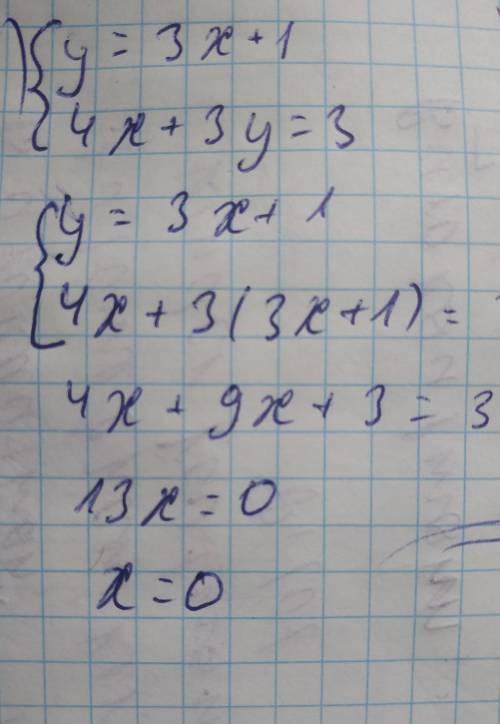 ) { y = 3x + 1
4x + 3y = 3
{ y = 3x + 1
4x + 3(3x + 1) =
4x + 9x + 3 = 3
13x = 0
x = 0